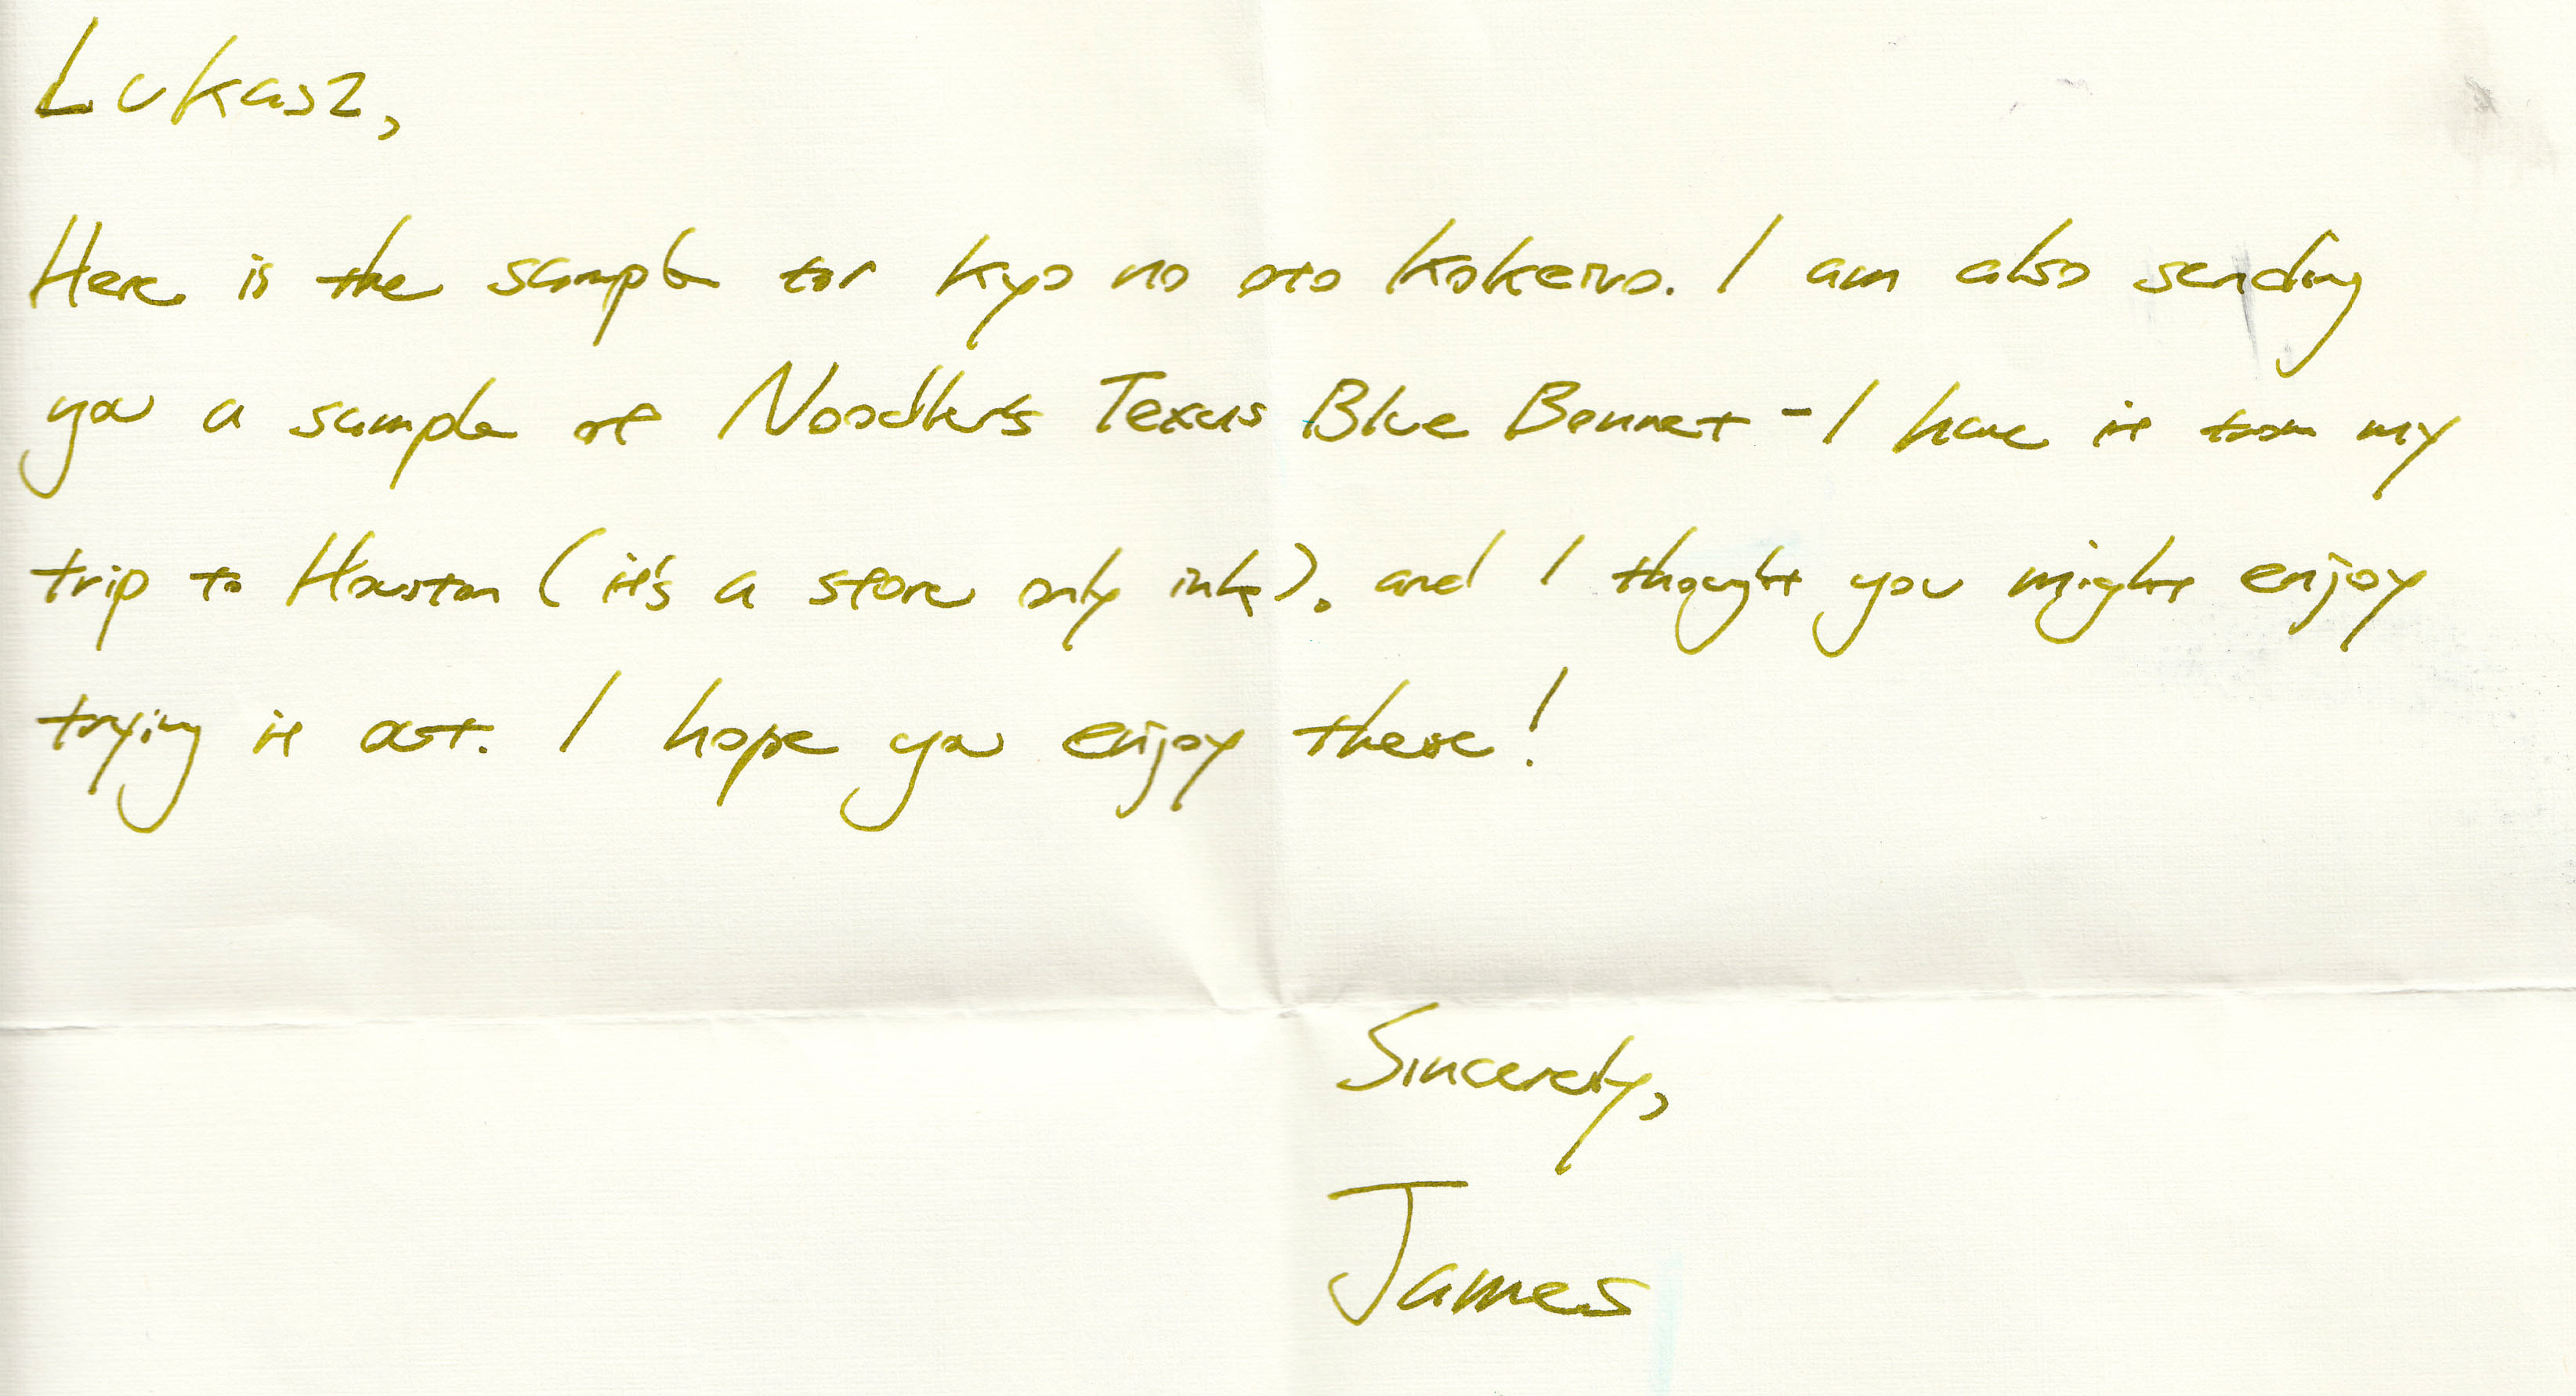 Lukasz,
Here is the sample for Kyo no oto Kokeiro. I am also sending
you a sample of Noodler's Texas Blue Bonnet - I have it from my
trip to Houston (it's a store only ink), and I thought you might enjoy
trying it out. I hope you enjoy these!
Sincerely,
James